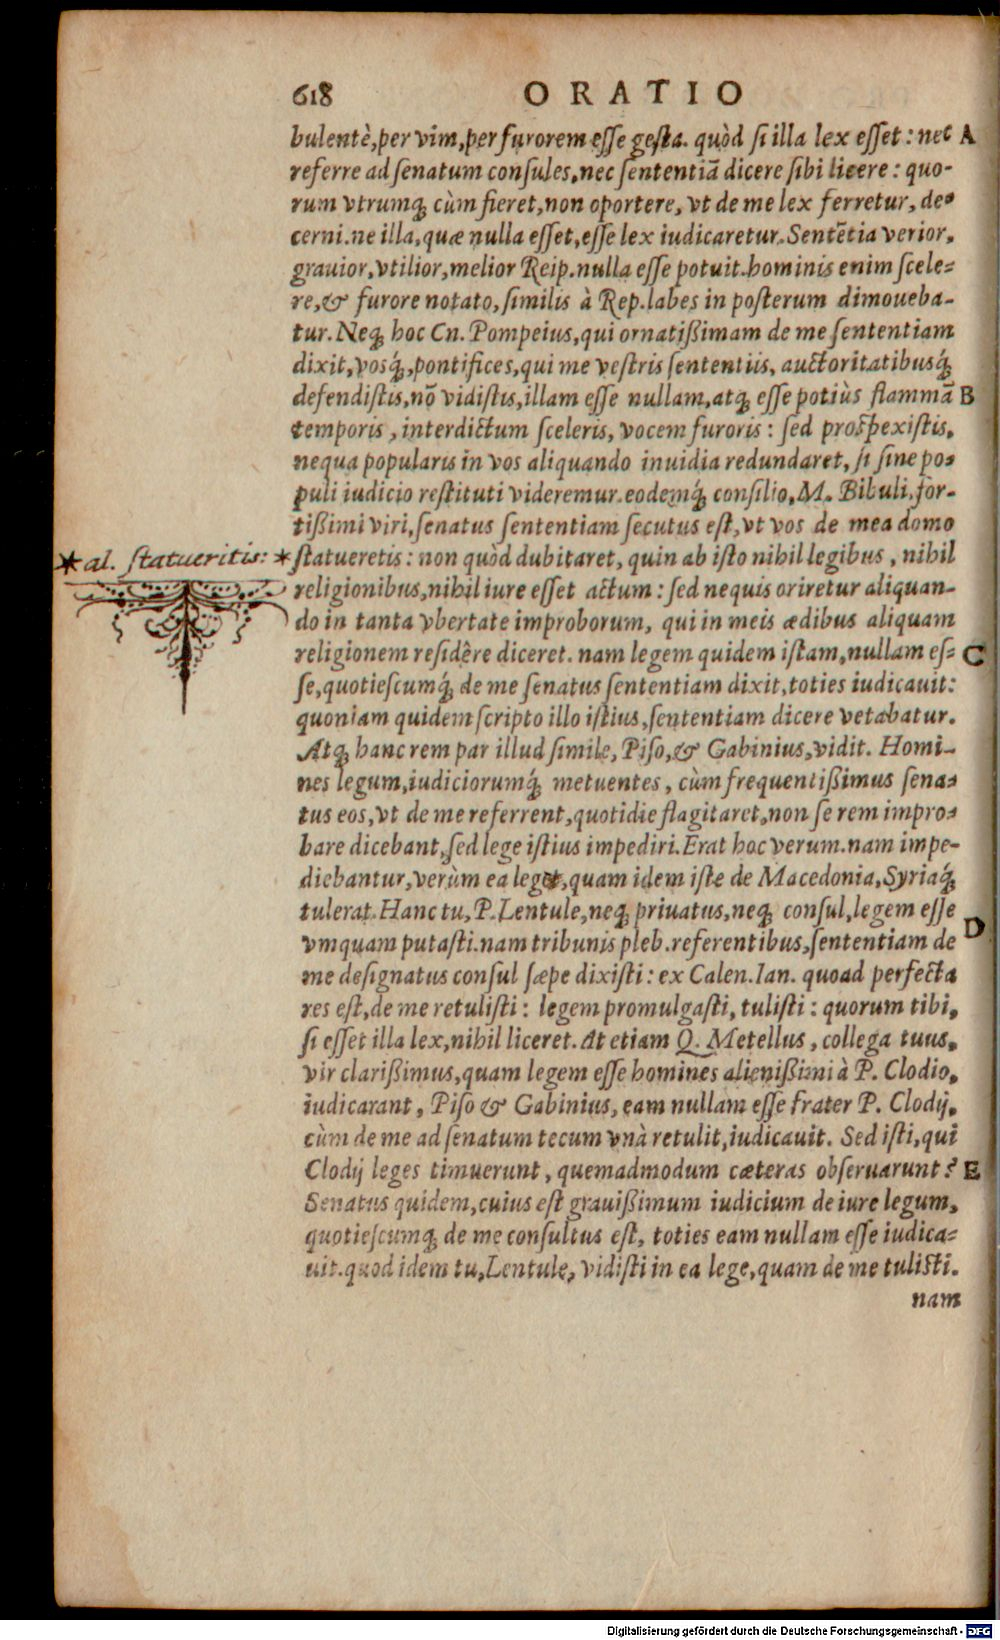 618 ORATIO
bulentè, per vim, per furorem esse gesta. quòd si illa lex esset: nec A
referre ad senatum consules, nec sententiã dicere sibi licere: quo-
rum vtrumq; cùm fieret, non oportere, vt de me lex ferretur, de-
cerni. ne illa, quæ nulla esset, esse lex iudicaretur. Sentẽtia verior,
grauior, vtilior, melior Reip. nulla esse potuit. hominis enim scele-
re, & furore notato, similis à Rep. labes in posterum dimoueba-
tur. Neq; hoc Cn. Pompeius, qui ornatißimam de me sententiam
dixit, vosq́;, pontifices, qui me vestris sententiis, auctoritatibusq́;
defendistis, nõ vidistis, illam esse nullam, atq; esse potiùs flammã B
temporis, interdictum sceleris, vocem furoris: sed prospexistis,
nequa popularis in vos aliquando inuidia redundaret, si sine po-
puli iudicio restituti videremur. eodemq́; consilio, M. Bibuli, for-
tißimi viri, senatus sententiam secutus est, vt vos de mea domo
* al. statueritis: * statueretis: non quòd dubitaret, quin ab isto nihil legibus, nihil
religionibus, nihil iure esset actum: sed nequis oriretur aliquan-
do in tanta vbertate improborum, qui in meis ædibus aliquam
religionem residêre diceret. nam legem quidem istam, nullam es- C
se, quotiescumq́; de me senatus sententiam dixit, toties iudicauit:
quoniam quidem scripto illo istius, sententiam dicere vetabatur.
Atq; hanc rem par illud simile, Piso, & Gabinius, vidit. Homi-
nes legum, iudiciorumq́; metuentes, cùm frequentißimus sena-
tus eos, vt de me referrent, quotidie flagitaret, non se rem impro-
bare dicebant, sed lege istius impediri. Erat hoc verum. nam impe-
diebantur, verùm ea lege, quam idem iste de Macedonia, Syriaq́;
tulerat. Hanc tu, P. Lentule, neq; priuatus, neq; consul, legem esse
vmquam putasti. nam tribunis pleb. referentibus, sententiam de D
me designatus consul sæpe dixisti: ex Calen. Ian. quoad perfecta
res est, de me retulisti: legem promulgasti, tulisti: quorum tibi,
si esset illa lex, nihil liceret. At etiam Q. Metellus, collega tuus,
vir clarißimus, quam legem esse homines alienißimi à P. Clodio,
iudicarant, Piso & Gabinius, eam nullam esse frater P. Clodij,
cùm de me ad senatum tecum vnà retulit, iudicauit. Sed isti, qui
Clodij leges timuerunt, quemadmodum cæteras obseruarunt? E
Senatus quidem, cuius est grauißimum iudicium de iure legum,
quotiescumq; de me consultus est, toties eam nullam esse iudica-
uit. quod idem tu, Lentule, vidisti in ea lege, quam de me tulisti.
nam
Digitalisierung gefördert durch die Deutsche Forschungsgemeinschaft - DFG